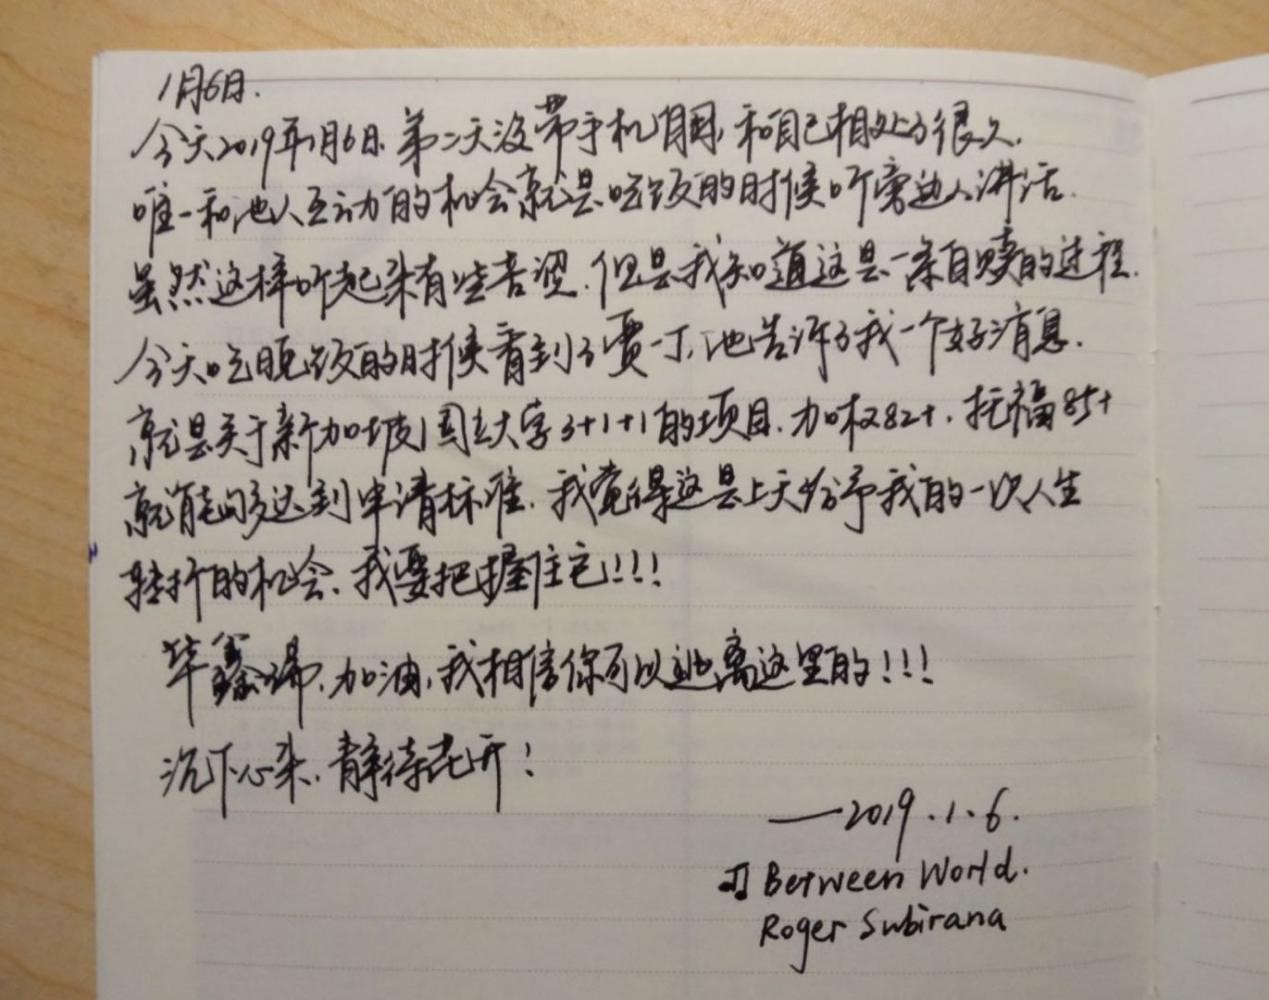 1月6日.
今天2019年1月6日、第二天没带手机自习,和自己相处了很久.
唯一和他人互动的机会就是吃饭的时候听旁边人讲话.
虽然这样听起来有些苦涩.但是我知道这是一条自赎的过程.
今天吃晚饭的时候看到了贾一丁,他告诉了我一个好消息.
就是关于新加坡国立大学3+1+1的项目.加权82+.托福85+
就能够达到申请标准.我觉得这是上天给予我的一次人生
转折的机会、我要把握住它!!!
毕鑫瑞.加油,我相信你可以逃离这里的!!!
沉下心来.静待花开!
——2019.1.6.
♫ Between World.
Roger Subirana